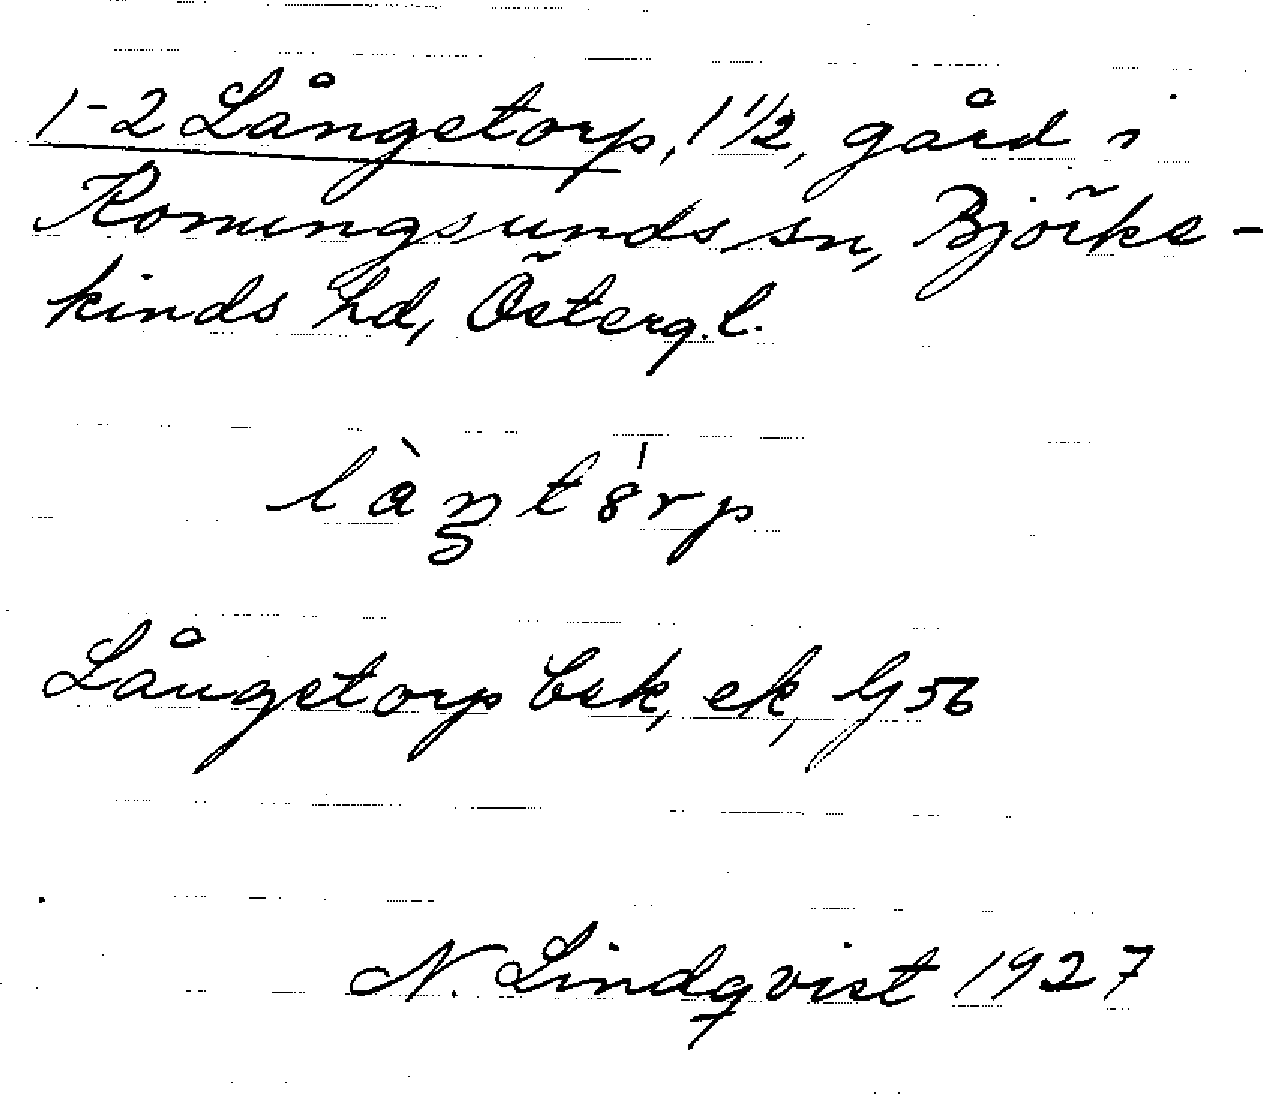 1-2 Långetorp, 1 1/2, gård i
Konungsunds sn, Björke-
kinds hd, Österg. l.
làŋtȣ́rp
Långetorp bsk, ek, Gj 56
N. Lindqvist 1927